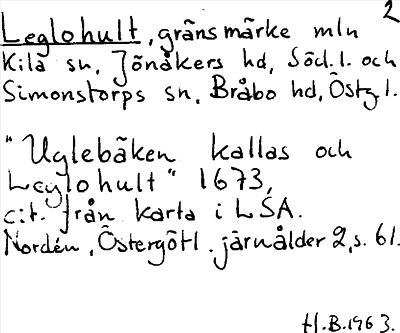 2
Leglohult, gränsmärke mln
Kila sn, Jönåkers hd, Söd.l. och
Simonstorps sn, Bråbo hd, Östg l.
"Uglebäken kallas och
Leglohult" 1673,
cit. från karta i LSA.
Nordén, Östergötl. järnålder 2, s. 61.
H.B.1963.